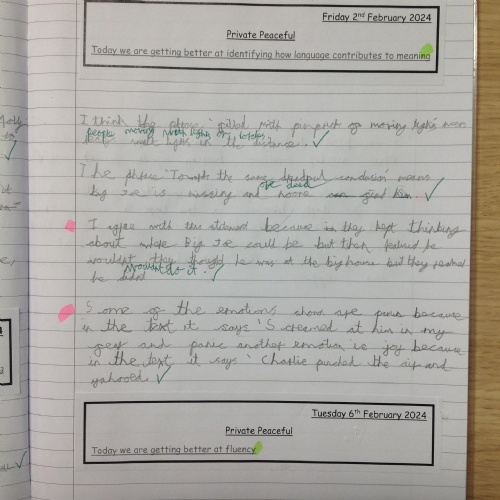 Friday 2nd February 2024
Private Peaceful
Today we are getting better at identifying how language contributes to meaning
I think the phrase 'filled with pin pricks of moving lights' mean
people moving with lights or torches
small lights in the distance.
The phrase 'Towards the same dreadful conclusion' means
or dead
big Joe is missing and noone can find him.
I agree with this statement because in they kept thinking
about where Big Joe could be but then realised he
wouldn't they thought he was at the big house but they realised
wouldn't do it.
he didnt
Some of the emotions shown are panic because
in the text it says 'Screamed at him in my
fear and panic another emotion is joy because
in the text it says 'Charlie punched the air and
yahooed
Tuesday 6th February 2024
Private Peaceful
Today we are getting better at fluency